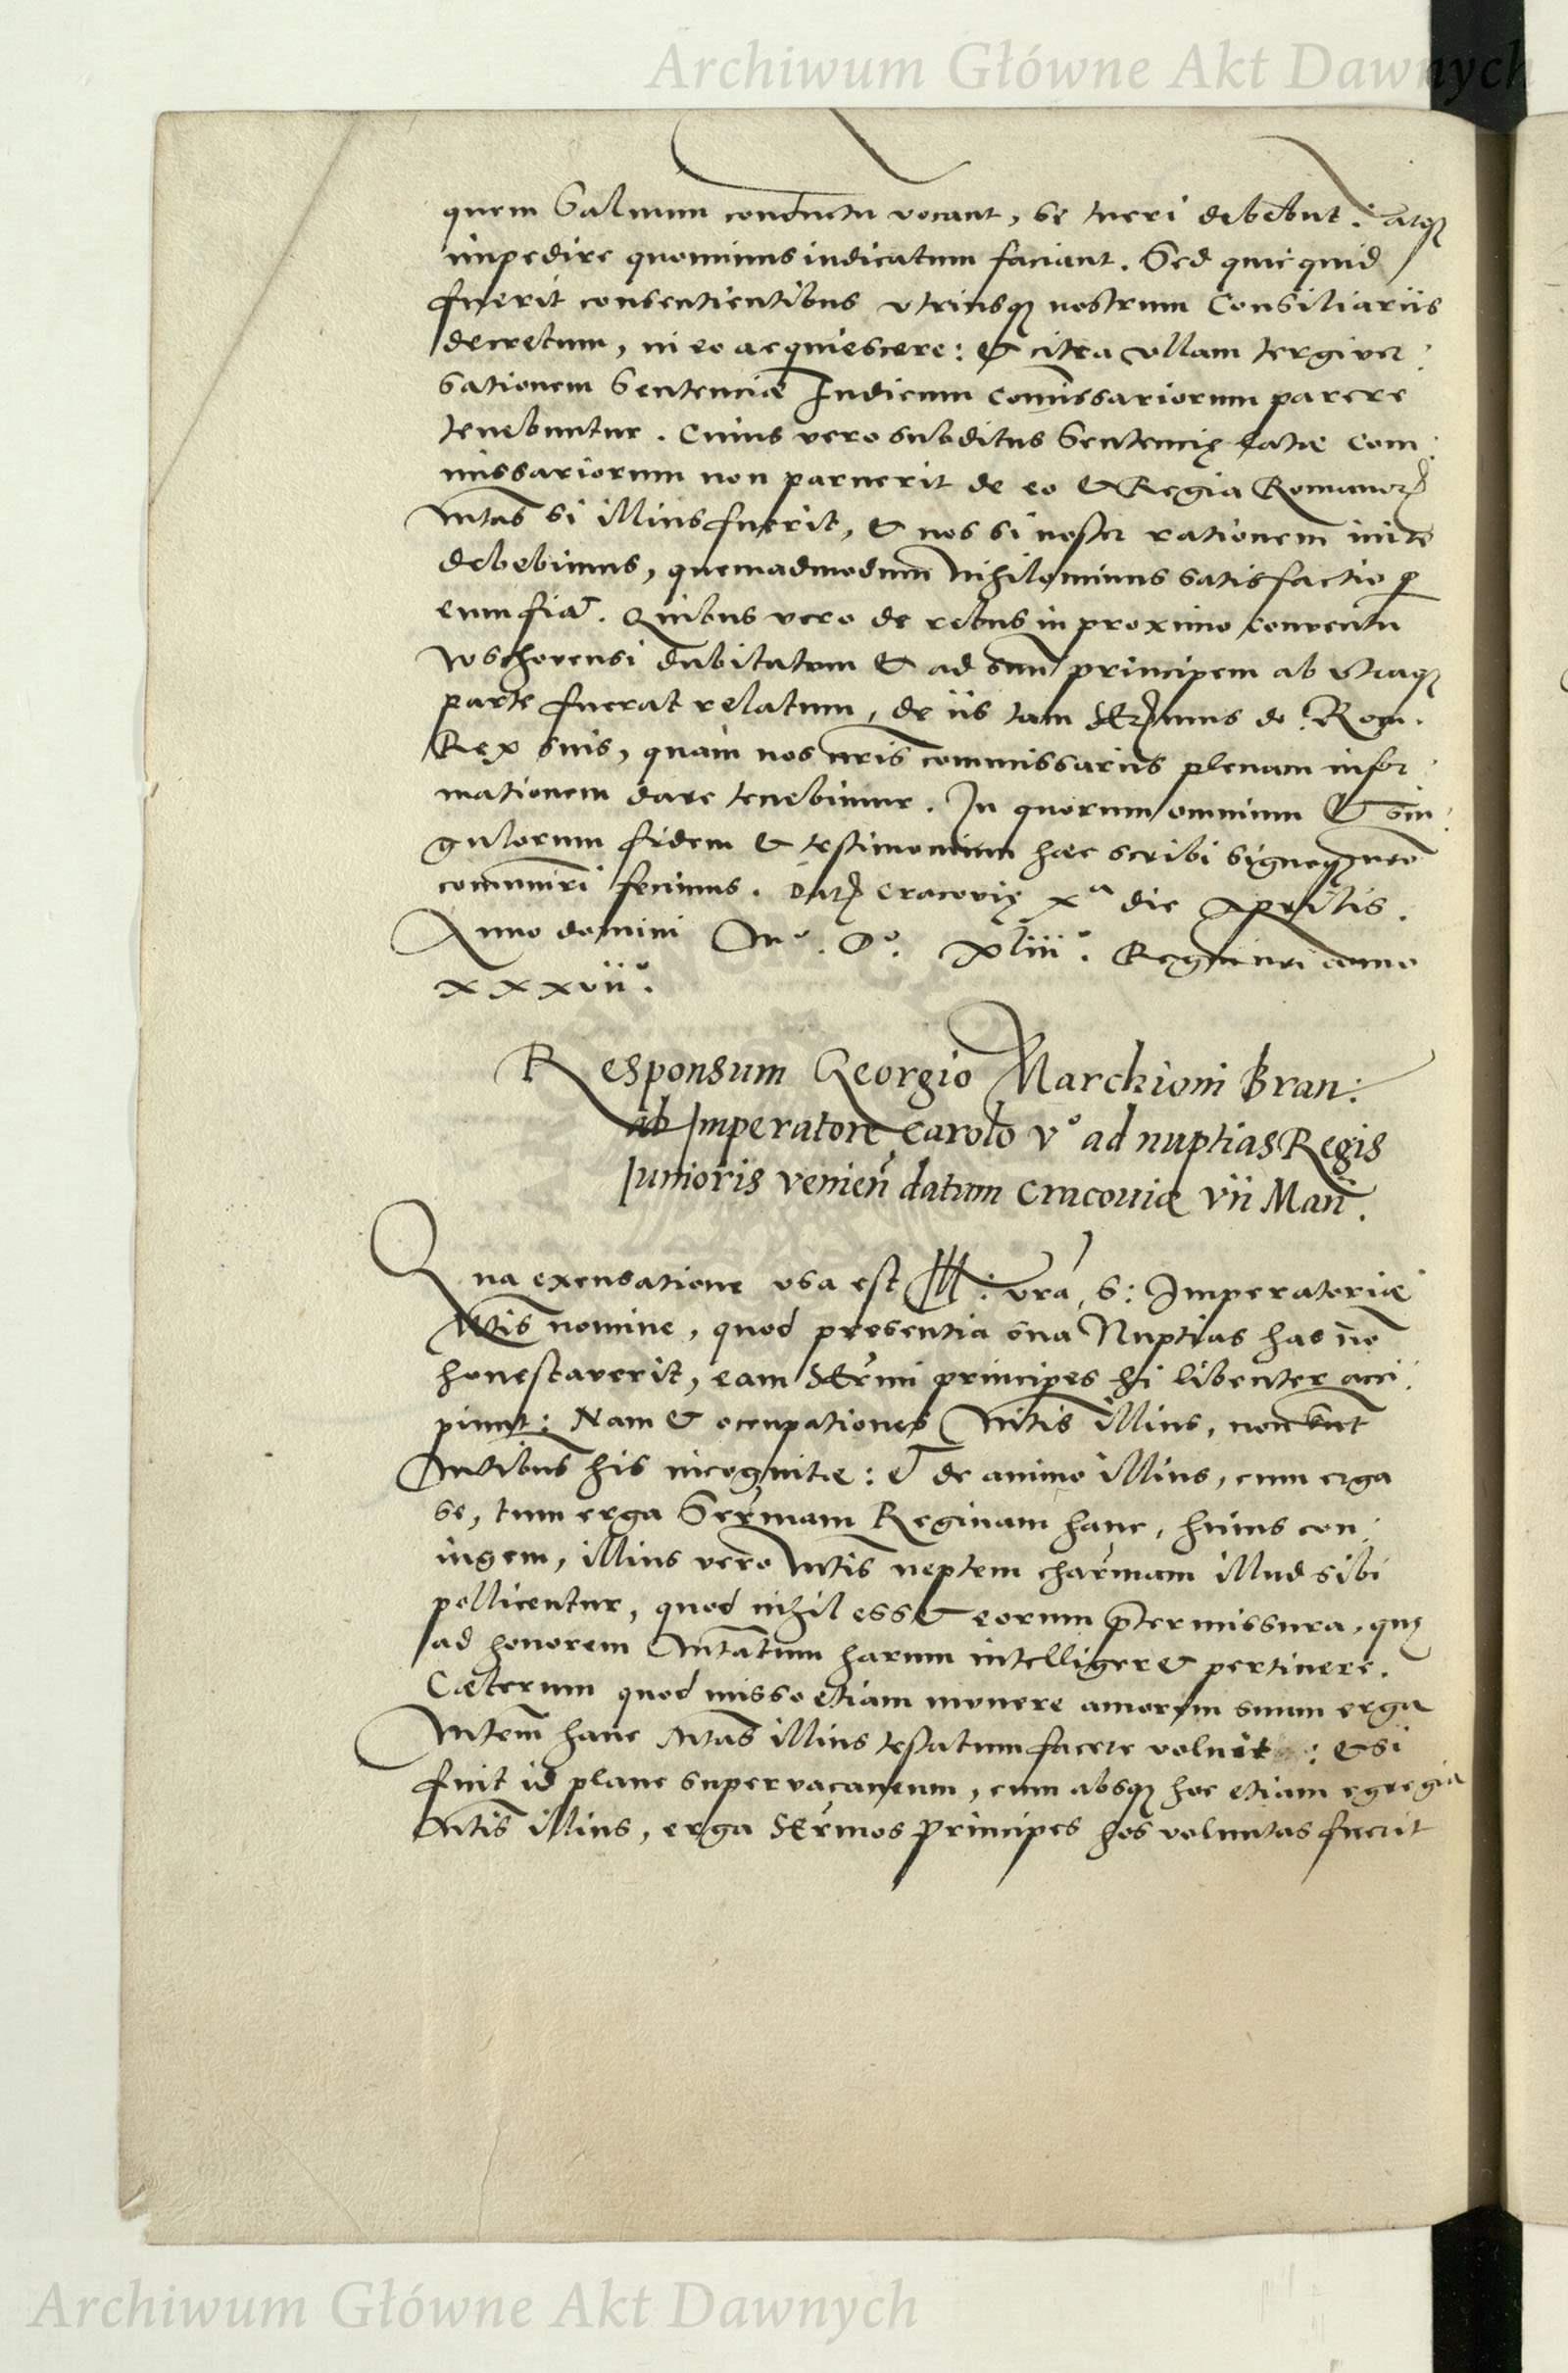 Archiwum Główne Akt Dawnych
quem Salvum conductu vocant, se tueri debebnt: atqȝ
impedire quominus iudicatum faciant. Sed quicquid
fuerit consentientibus vtriusqȝ nostrum Consiliariis
decretum, in eo acquiescere: & citra vllam tergiver:
sationem Sentenciæ Iudicum Comissariorum parere
tenebuntur. Cuius vero subditus Sentencię latæ Com:
missariorum non paruerit de eo & Regia Romanorꝝ
Mtas si illius fuerit, & nos si noster rationem inire
debebimus, quemadmodum Nihilominus satisfactio ꝑ
eum fiat. Quibus vero de rebus in proximo conventu
Wschovensi dubitatum & ad suum principem ab vtraqȝ
parte fuerat relatum, de iis tam Sermus do: Rom.
Rex suis, quam nos nris commissariis plenam infor:
mationem dare tenebimur. In quorum omnium & sin:
gulorum fidem & testimonium hæc scribi signoqȝ nro
communiri fecimus. Datꝝ Cracovię Xª die Aprilis.
Anno domini Mº. Dº. Xliiiº. Regni nri anno
xxxviiº.
Responsum Georgio Marchioni Bran:
ab Imperatore Carolo Vº ad nuptias Regis
Iunioris venien datum Cracouiæ Vii Maii.
Qua excusatione vsa est Ill: vra, S: Imperatoriæ
Mtis nomine, quod presentia sua Nuptias has no
honestaverit, eam Sermi principes hi libenter acci:
piunt: Nam & occupationes Mtis illius, non sunt
Mtibus his incognitæ: & de animo illius, cum erga
se, tum erga Sermam Reginam hanc, huius con:
iugem, illius vero Mtis neptem charmam illud sibi
pollicentur, quod nihil esset eorum ptermissura, quę
ad honorem Mtatum harum intelligeret pertinere.
Cæterum quod misso etiam munere amorem suum erga
Mtem hanc Mtas illius testatum facere voluit: Etsi
fuit id plane supervacaneum, cum absqȝ hoc etiam egregia
Mtis illius, erga Sermos Principes hos voluntas fuerit
Archiwum Główne Akt Dawnych